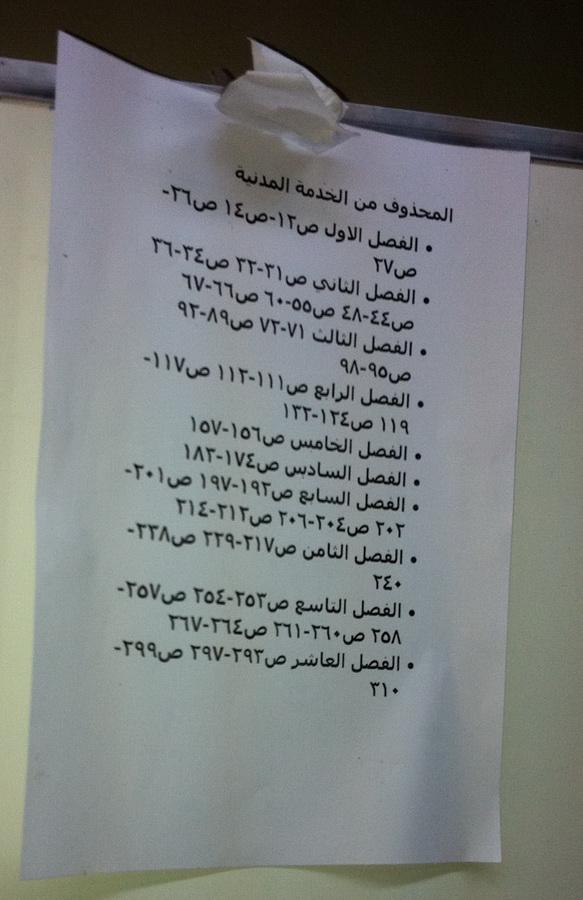 المحذوف من الخدمة المدنية
• الفصل الاول ص١٢-ص١٤ ص٢٦-
ص٢٧
• الفصل الثاني ص٣١-٣٢ ص٣٤-٣٦
ص٤٤-٤٨ ص٥٥-٦٠ ص٦٦-٦٧
• الفصل الثالث ٧١-٧٢ ص٨٩-٩٢
ص٩٥-٩٨
• الفصل الرابع ص١١١-١١٢ ص١١٧-
١١٩ ص١٢٤-١٣٢
• الفصل الخامس ص١٥٦-١٥٧
• الفصل السادس ص١٧٤-١٨٢
• الفصل السابع ص١٩٢-١٩٧ ص٢٠١-
٢٠٢ ص٢٠٤-٢٠٦ ص٢١٢-٢١٤
• الفصل الثامن ص٢١٧-٢٢٩ ص٢٣٨-
٢٤٠
• الفصل التاسع ص٢٥٣-٢٥٤ ص٢٥٧-
٢٥٨ ص٢٦٠-٢٦١ ص٢٦٤-٢٦٧
• الفصل العاشر ص٢٩٣-٢٩٧ ص٢٩٩-
٣١٠